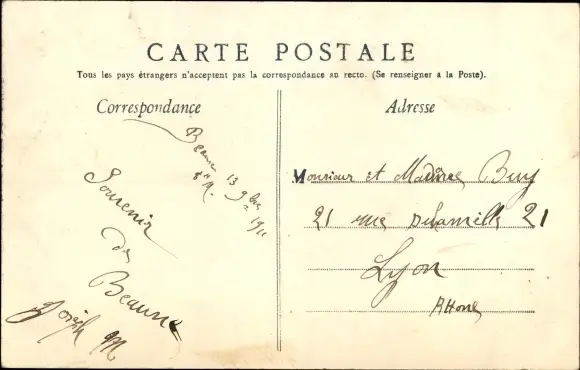 CARTE POSTALE
Tous les pays étrangers n'acceptent pas la correspondance au recto. (Se renseigner à la Poste).
Correspondance
Adresse
Beaune 13 9bre 1911
Souvenir
de
Beaune
Joseph M
Monsieur et Madame Buy
21 rue 21
Lyon
Rhone